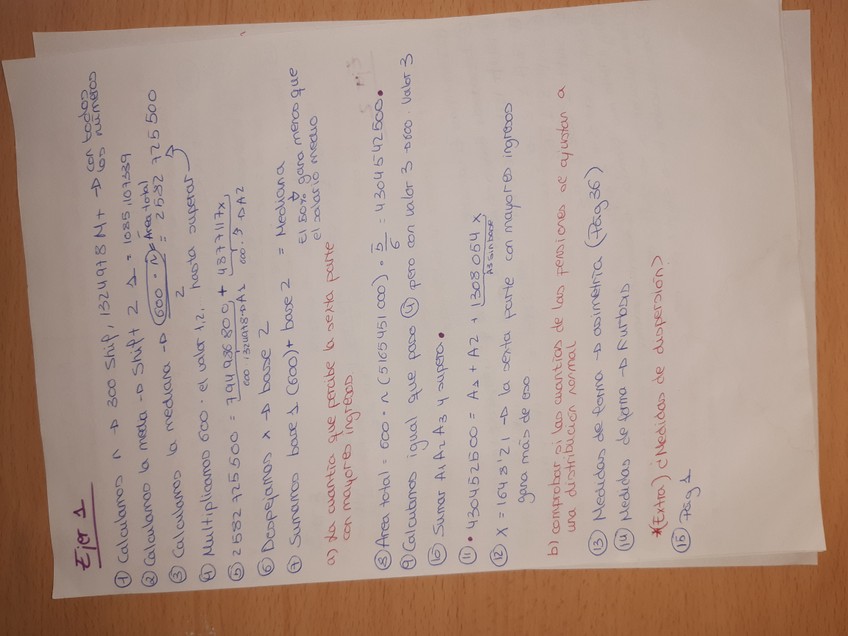 Ejer 1
① Calculamos n → 300 Shif, 1324978 M+ → con todos los números
② Calculamos la media → Shift 2 1 = 1085,107339
③ Calculamos la mediana → 600 · n → Área total / 2 = 2582 725 500
④ Multiplicamos 600 · el valor 1,2, hasta superar
⑤ 2582 725 500 = 794986800 + 4377117x
600 · 1324978 → A1
600 · ? → A2
⑥ Despejamos x → base 2
⑦ Sumamos base 1 (600) + base 2 = Mediana
El 50% gana menos que
el salario medio
a) La cuantía que percibe la sexta parte
con mayores ingresos
⑧ Área total = 600 · n (5165451 000) · 5/6 = 4304542500 •
⑨ Calculamos igual que paso ④ pero con valor 3 → 600 · valor 3
⑩ Sumar A1 A2 A3 y supera •
⑪ • 430452500 = A1 + A2 + 1308054 x
A3 sin base
⑫ x = 1648'21 → la sexta parte con mayores ingresos
gana más de eso
b) comprobar si las cuantías de las pensiones se ajustan a
una distribución normal
⑬ Medidas de forma → asimetría (Pág 36)
⑭ Medidas de forma → Kurtosis
*(Extra) ¿Medidas de dispersión?
⑮ Pág 1